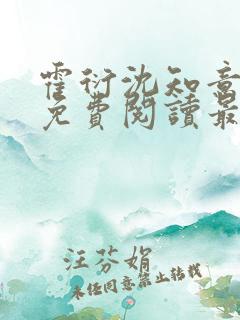 霍衍沈知意
免費閱讀最
汪芬娟
未经同意禁止转载